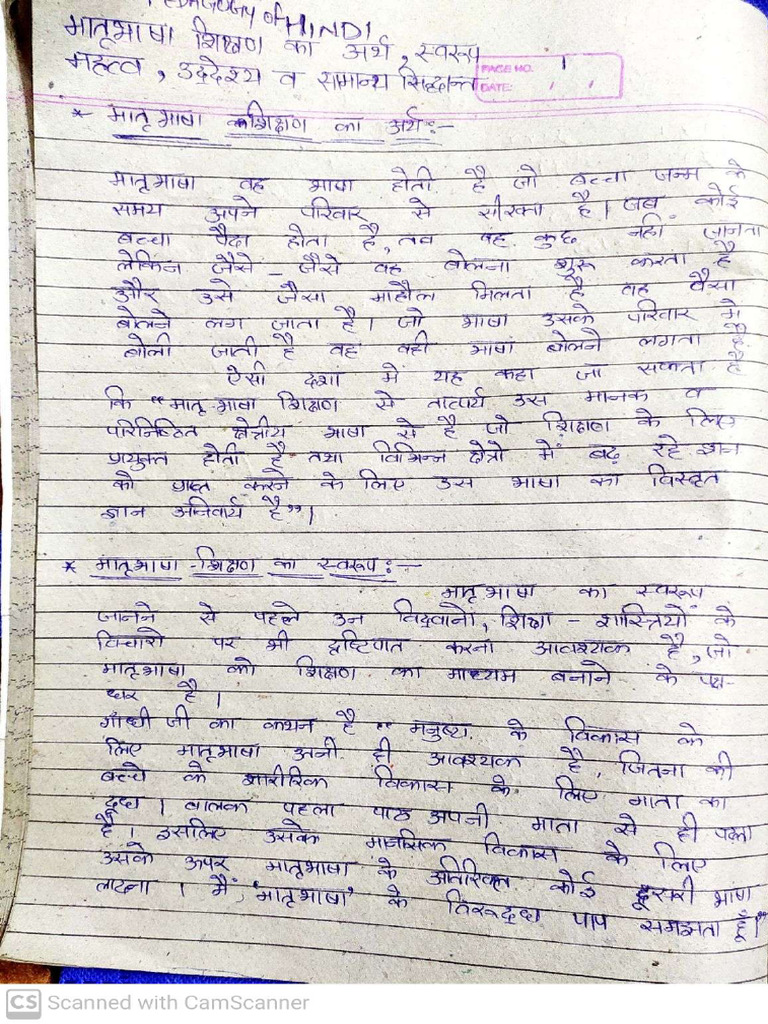 PEDAGOGY of HINDI
मातृभाषा शिक्षण का अर्थ, स्वरूप
महत्व, उद्देश्य व सामान्य सिद्धान्त
PAGE NO. 1
DATE: / /
* मातृभाषा शिक्षण का अर्थ:-
मातृभाषा वह भाषा होती है जो बच्चा जन्म के
समय अपने परिवार से सीखता है। जब कोई
बच्चा पैदा होता है, तब वह कुछ नहीं जानता
लेकिन जैसे - जैसे वह बोलना शुरू करता है
और उसे जैसा माहौल मिलता है वह वैसा
बोलने लग जाता है। जो भाषा उसके परिवार मे
बोली जाती है वह वही भाषा बोलने लगता है.
ऐसी दशा में यह कहा जा सकता है
कि "मातृ-भाषा शिक्षण से तात्पर्य उस मानक व
परिनिष्ठित क्षेत्रीय भाषा से है जो शिक्षण के लिए
प्रयुक्त होती है तथा विभिन्न क्षेत्रो में बढ़ रहे ज्ञान
को प्राप्त करने के लिए उस भाषा का विस्तृत
ज्ञान अनिवार्य है"।
* मातृभाषा -शिक्षण का स्वरूप:-
मातृभाषा का स्वरूप
जानने से पहले उन विद्वानो, शिक्षा - शास्त्रियों के
विचारो पर भी द्रष्टिपात करना आवश्यक है, जो
मातृभाषा को शिक्षण का माध्यम बनाने के पक्ष-
धर है।
गाँधी जी का कथन है "मनुष्य के विकास के
लिए मातृभाषा उतनी ही आवश्यक है, जितना की
बच्चे के शारीरिक विकास के लिए माता का
दूध। बालक पहला पाठ अपनी माता से ही पढ़ता
है। इसलिए उसके मानसिक विकास के लिए
उसके ऊपर मातृभाषा के अतिरिक्त कोई दूसरी भाषा
लादना। मैं, 'मातृभाषा' के विरूद्ध पाप समझता हूँ।"
CS Scanned with CamScanner